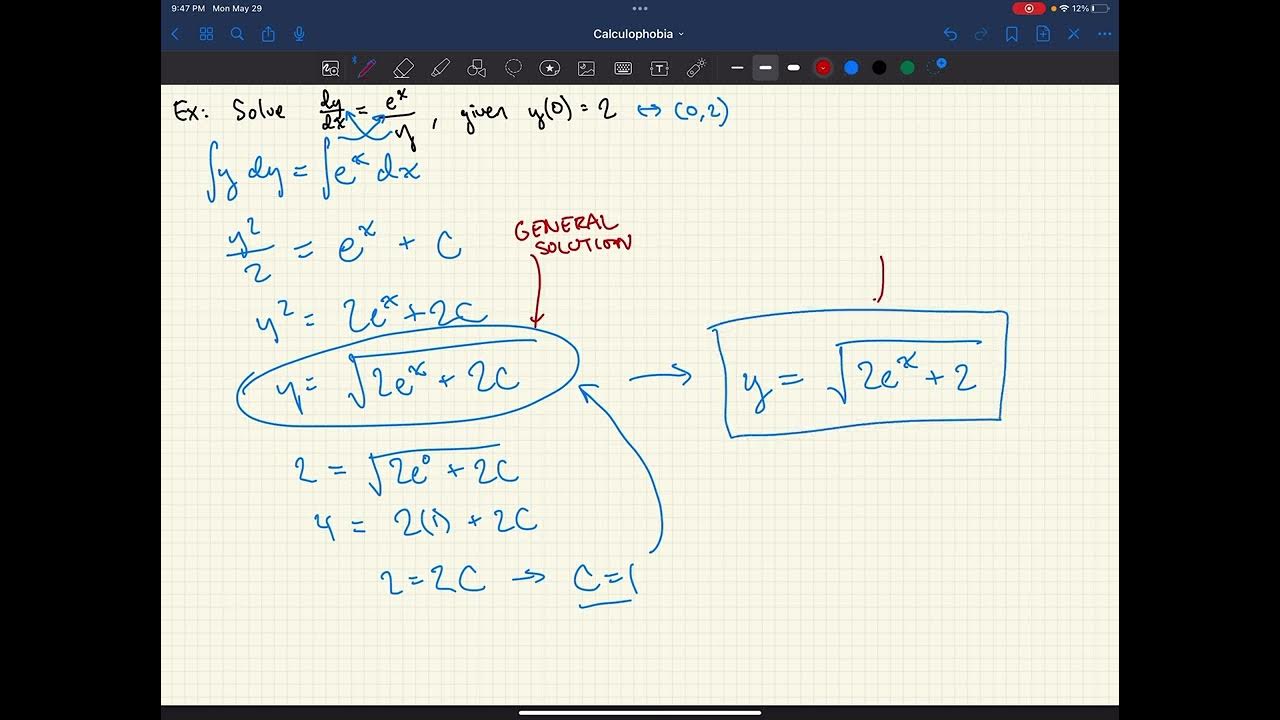 9:47 PM Mon May 29
12%
Calculophobia
Ex: Solve dy/dx = e^x/y, given y(0) = 2 ↔ (0,2)
∫y dy = ∫e^x dx
y²/2 = e^x + C
GENERAL
SOLUTION
y² = 2e^x + 2C
y = √(2e^x + 2C) → y = √(2e^x + 2)
2 = √(2e⁰ + 2C)
4 = 2(1) + 2C
2 = 2C → C = 1